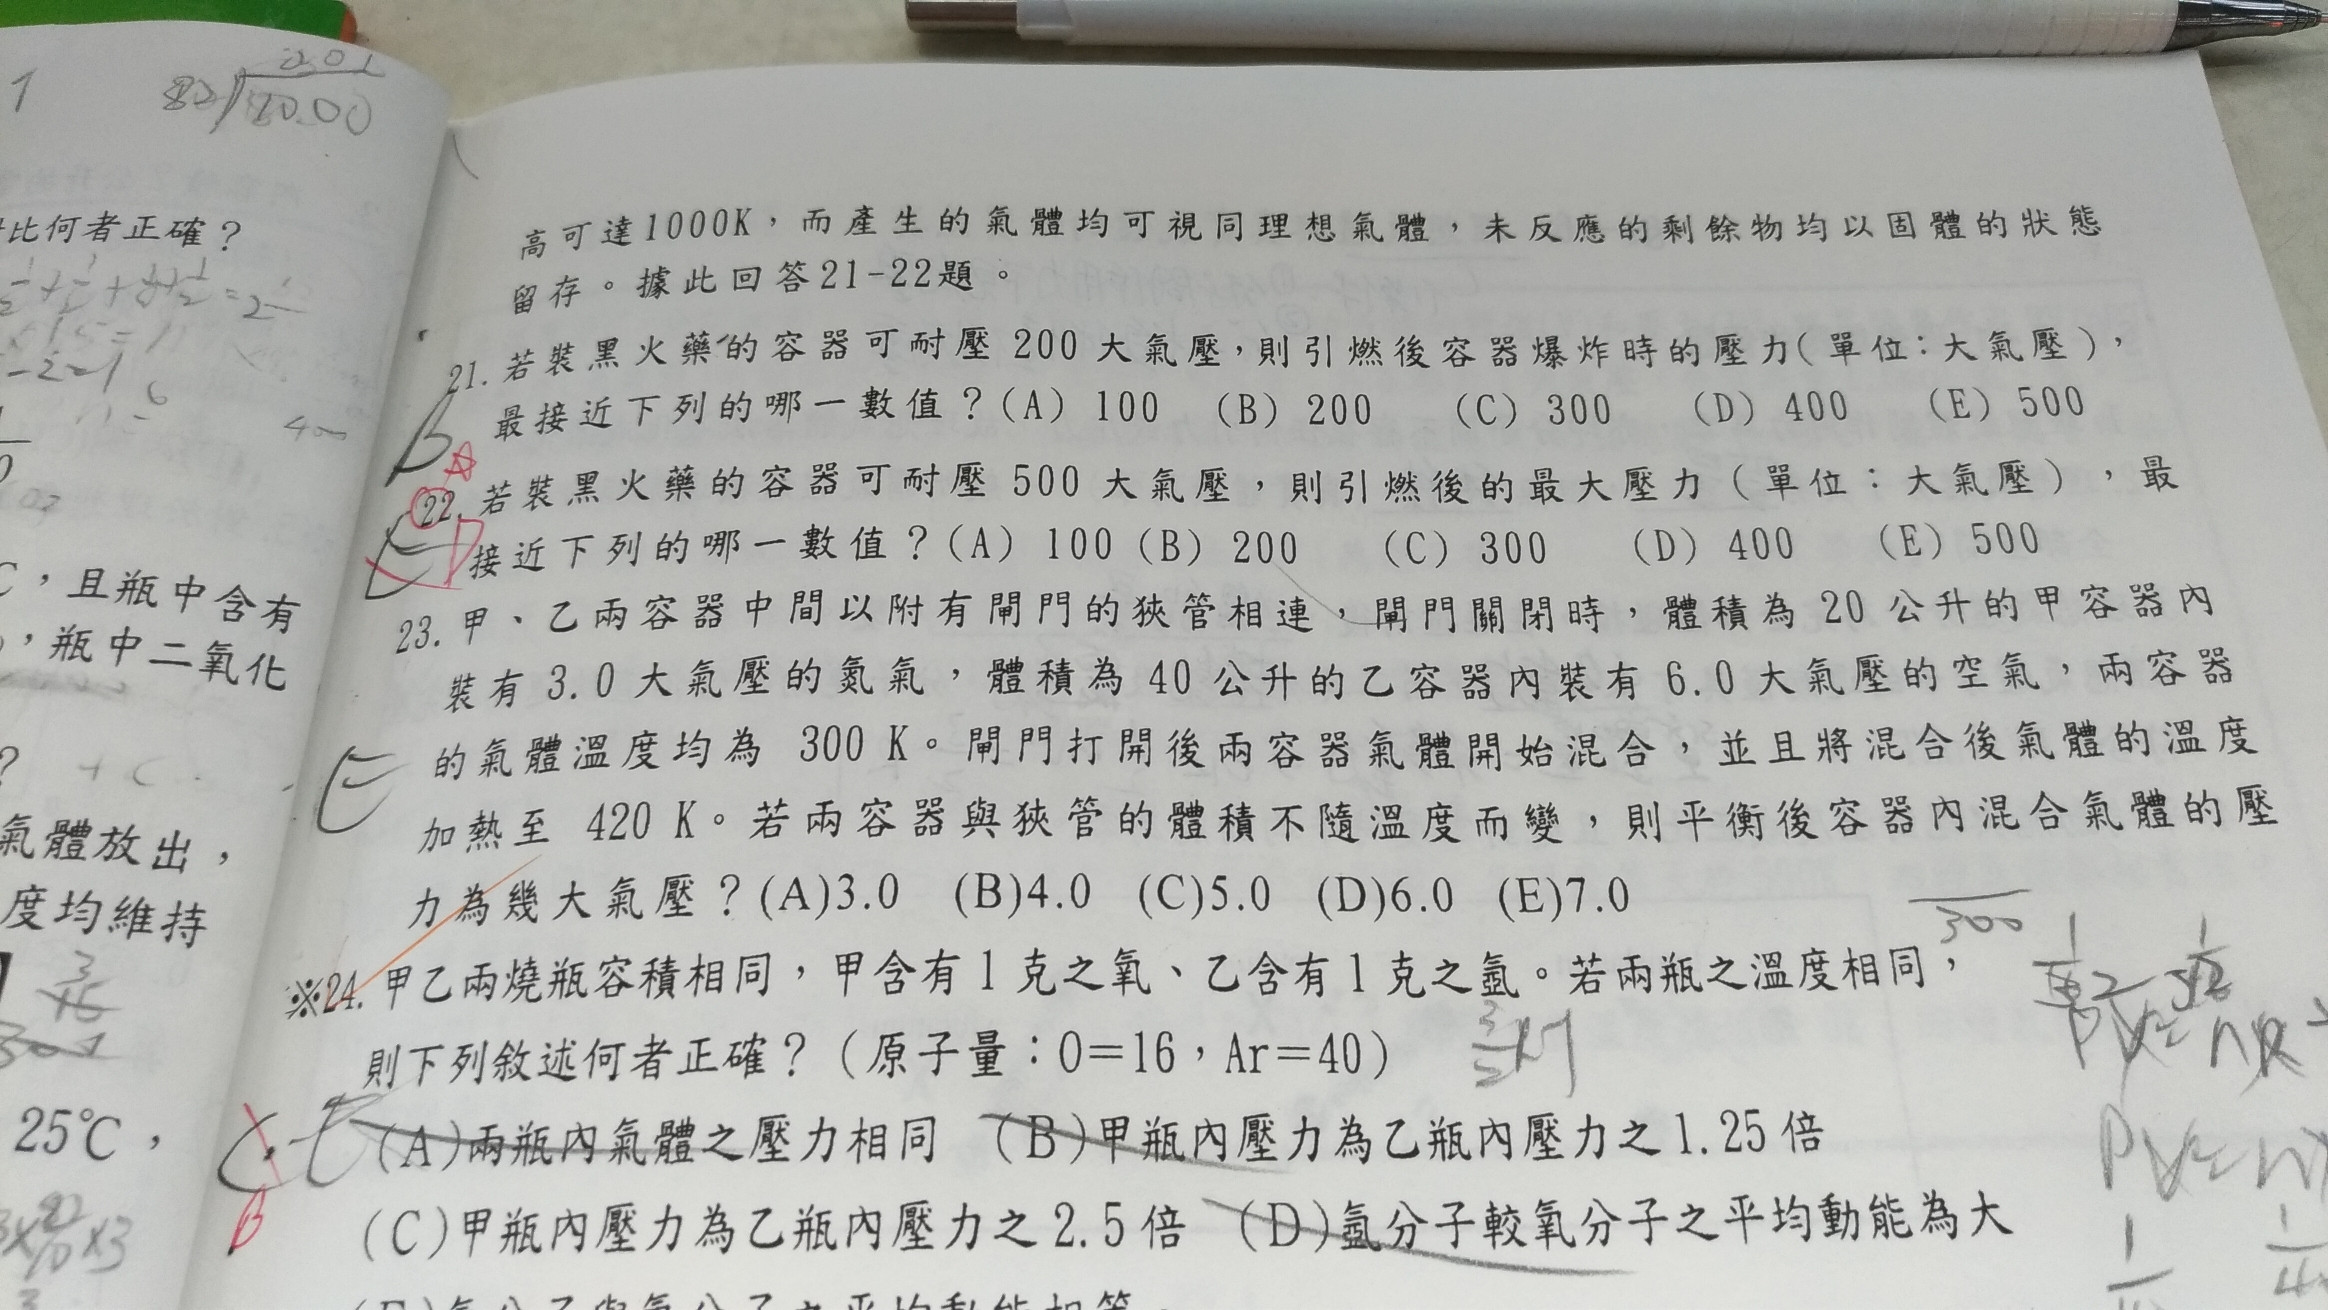 1
201
82
比何者正確？
400
C，且瓶中含有
，瓶中二氧化
？
氣體放出，
度均維持
25℃，
高可達1000K，而產生的氣體均可視同理想氣體，未反應的剩餘物均以固體的狀態
留存。據此回答21-22題。
21.若裝黑火藥的容器可耐壓 200 大氣壓，則引燃後容器爆炸時的壓力(單位：大氣壓)，
最接近下列的哪一數值？(A) 100 (B) 200 (C) 300 (D) 400 (E) 500
B
22.若裝黑火藥的容器可耐壓 500 大氣壓，則引燃後的最大壓力(單位：大氣壓)，最
接近下列的哪一數值？(A) 100 (B) 200 (C) 300 (D) 400 (E) 500
E D
23.甲、乙兩容器中間以附有閘門的狹管相連，閘門關閉時，體積為 20 公升的甲容器內
裝有 3.0 大氣壓的氮氣，體積為 40 公升的乙容器內裝有 6.0 大氣壓的空氣，兩容器
的氣體溫度均為 300 K。閘門打開後兩容器氣體開始混合，並且將混合後氣體的溫度
E
加熱至 420 K。若兩容器與狹管的體積不隨溫度而變，則平衡後容器內混合氣體的壓
力為幾大氣壓？(A)3.0 (B)4.0 (C)5.0 (D)6.0 (E)7.0
300
※24.甲乙兩燒瓶容積相同，甲含有1克之氧、乙含有1克之氬。若兩瓶之溫度相同，
則下列敘述何者正確？(原子量：O＝16，Ar＝40)
C E
(A)兩瓶內氣體之壓力相同 (B)甲瓶內壓力為乙瓶內壓力之1.25倍
B
(C)甲瓶內壓力為乙瓶內壓力之2.5倍 (D)氬分子較氧分子之平均動能為大